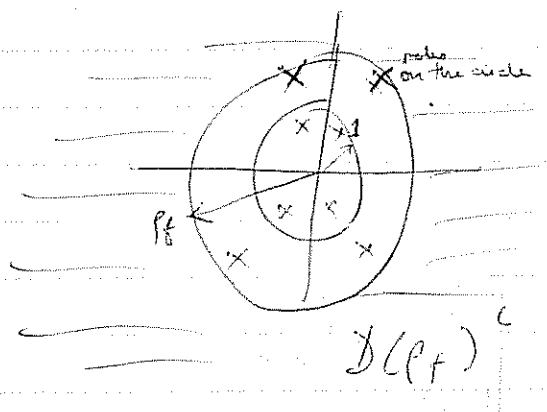 poles
on the circle
1
ρ_f
D(ρ_f)^c